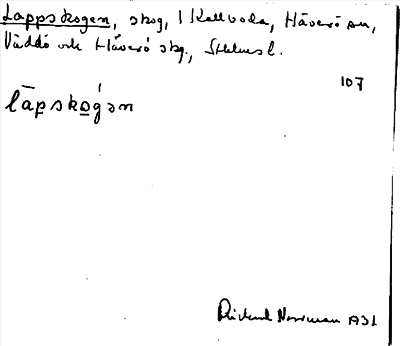 Lappskogen, skog, 1 Kallboda, Häverö sn,
Väddö och Häverö skg., Sthlmsl.
107
lāpskog̀ən
Rickard Norrman 1931